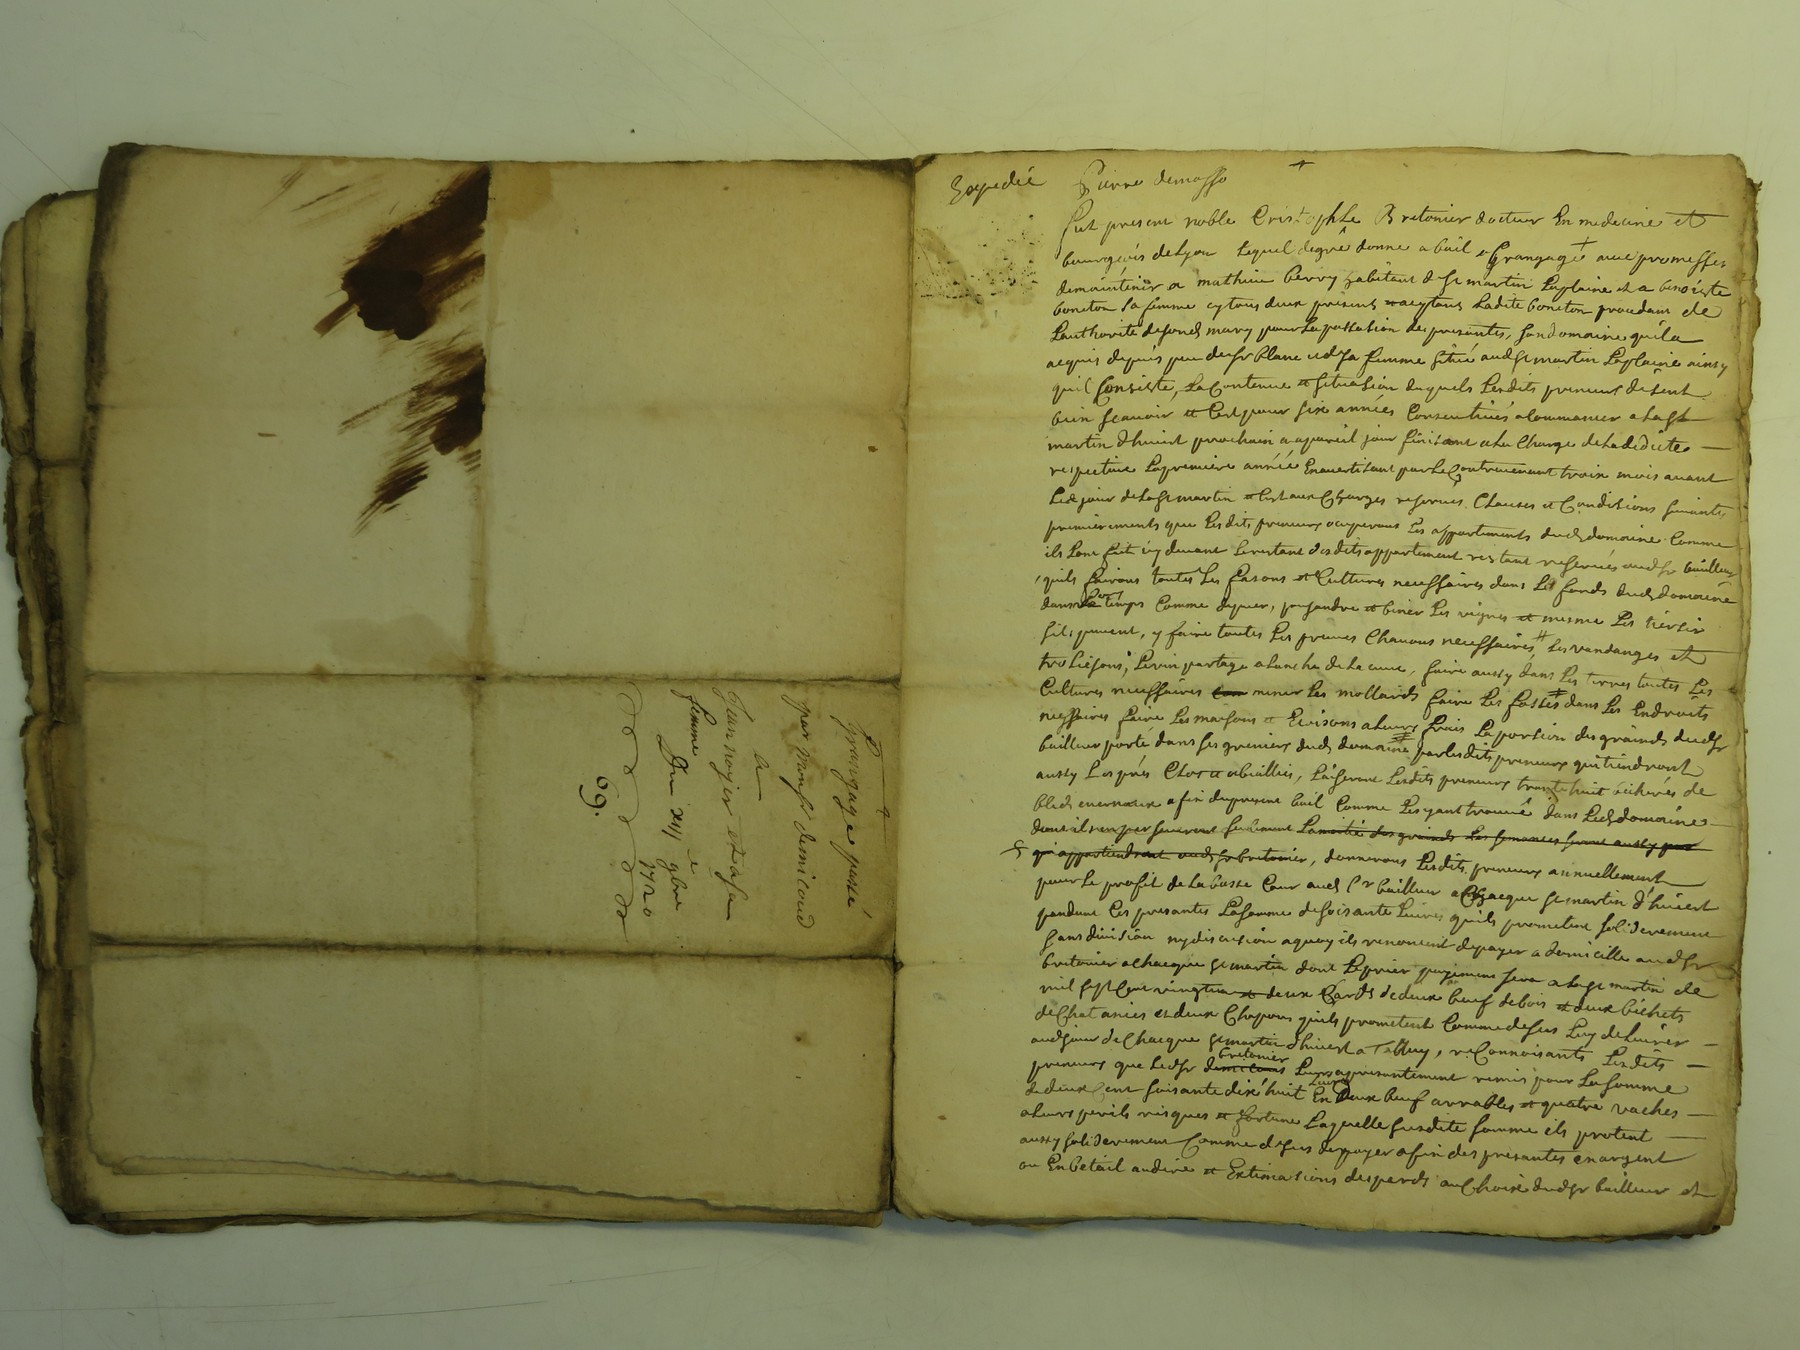 Grangage passé
par monsr demicoud
a
Jean noyer et a sa
femme
Du xij e 9bre
1720
69.
Expedié
Pierre demasso
Fut present noble Cristophle Bretonier docteur En medecine et
bourgeois de Lyon lequel degré donne a bail a Grangage avec promesses
demaintenir a mathieu berry habitant d St martin Laplaine et a benoiste
boneton sa femme cy tous deux presents et aceptans Ladite boneton procedant de
Lauthorité desond mary pour La passation des presantes, son domaine quila
acquis depuis peu du Sr blanc et d sa femme situé aud St martin Laplaine ainsy
quil Consiste, La Contenue et situasion duquels Lesdits preneurs disent
bien scavoir et Cest pour six années Consecutives a Commancer a La St
martin dhivert prochain a apareil jour finisant a La Charge de La dedite
respective La premiere année En avertisant par Le Contrevenant trois mois avant
Led jour de La St martin et Cest aux Charges reserves Clauses et Condisions suivantes
premierements que Lesdits preneurs ocuperont Les appartements dud domaine Comme
ils Lont fait cy devant Le restant desdits appartement restant reservés aud Sr bailleur
quils fairont toutes Les fasons et Cultures neuessaires dans Les fonds dud domaine
dans Leurs temps Comme deguer, et biner Les vignes et mesme Les tiersir
sils peuvent, y faire toutes Les preuves Chavons neuessaires Les vandanges et
Le vin partagé a Lanche de La cuve, faire aussy dans Les terres toutes Les
Cultures neuessaires mener Les mollards faire Les fossés dans Les Endroits
nessaires faire Les moisons et Ecusons a Leurs frais La portion des grainds dud Sr
bailleur porté dans ses greniers dud domaine par Lesdits preneurs qui tiendront
aussy Les prés Clos et Laiseront Lesdits preneurs trante huit bicherés de
bled en verneure a fin du present bail Comme Les ayant trouvé dans Led domaine
dont il La moitié des grainds Les semances seront aussy par
qui appartiendront aud Sr bretonier, donneront Lesdits preneurs annuellement
pour Le profit de La basse Cour aud Sr bailleur a Chacque St martin d'hivert
pandant Les presantes La somme de soisante Livres quils prometent soliderement
sans division ny discusion a quoy ils renoncent de payer a domicille aud Sr
bretonier a Chacque St martin dont Le prier payement sera a La St martin de
mil sept Cent vingt un et deux Chards de deux beuf de bois et deux bichets
de Chatanies et deux Chapons quils prometent Comme desus Luy de Livrer
aud jour de Chacque St martin dhivert a Talluy, reConnoisants Lesdits
preneurs que Led Sr bretonier Leurs a presantement remis pour La somme
de deux Cent soisante dix huit Livres En deux beuf arrables et quatre vaches
a Leurs perils risques et fortune Laquelle susdite somme ils protent
aussy soliderement Comme desus de payer a fin des presantes en argent
ou En betail au dire et Extimasions desperds au Choix dud Sr bailleur et